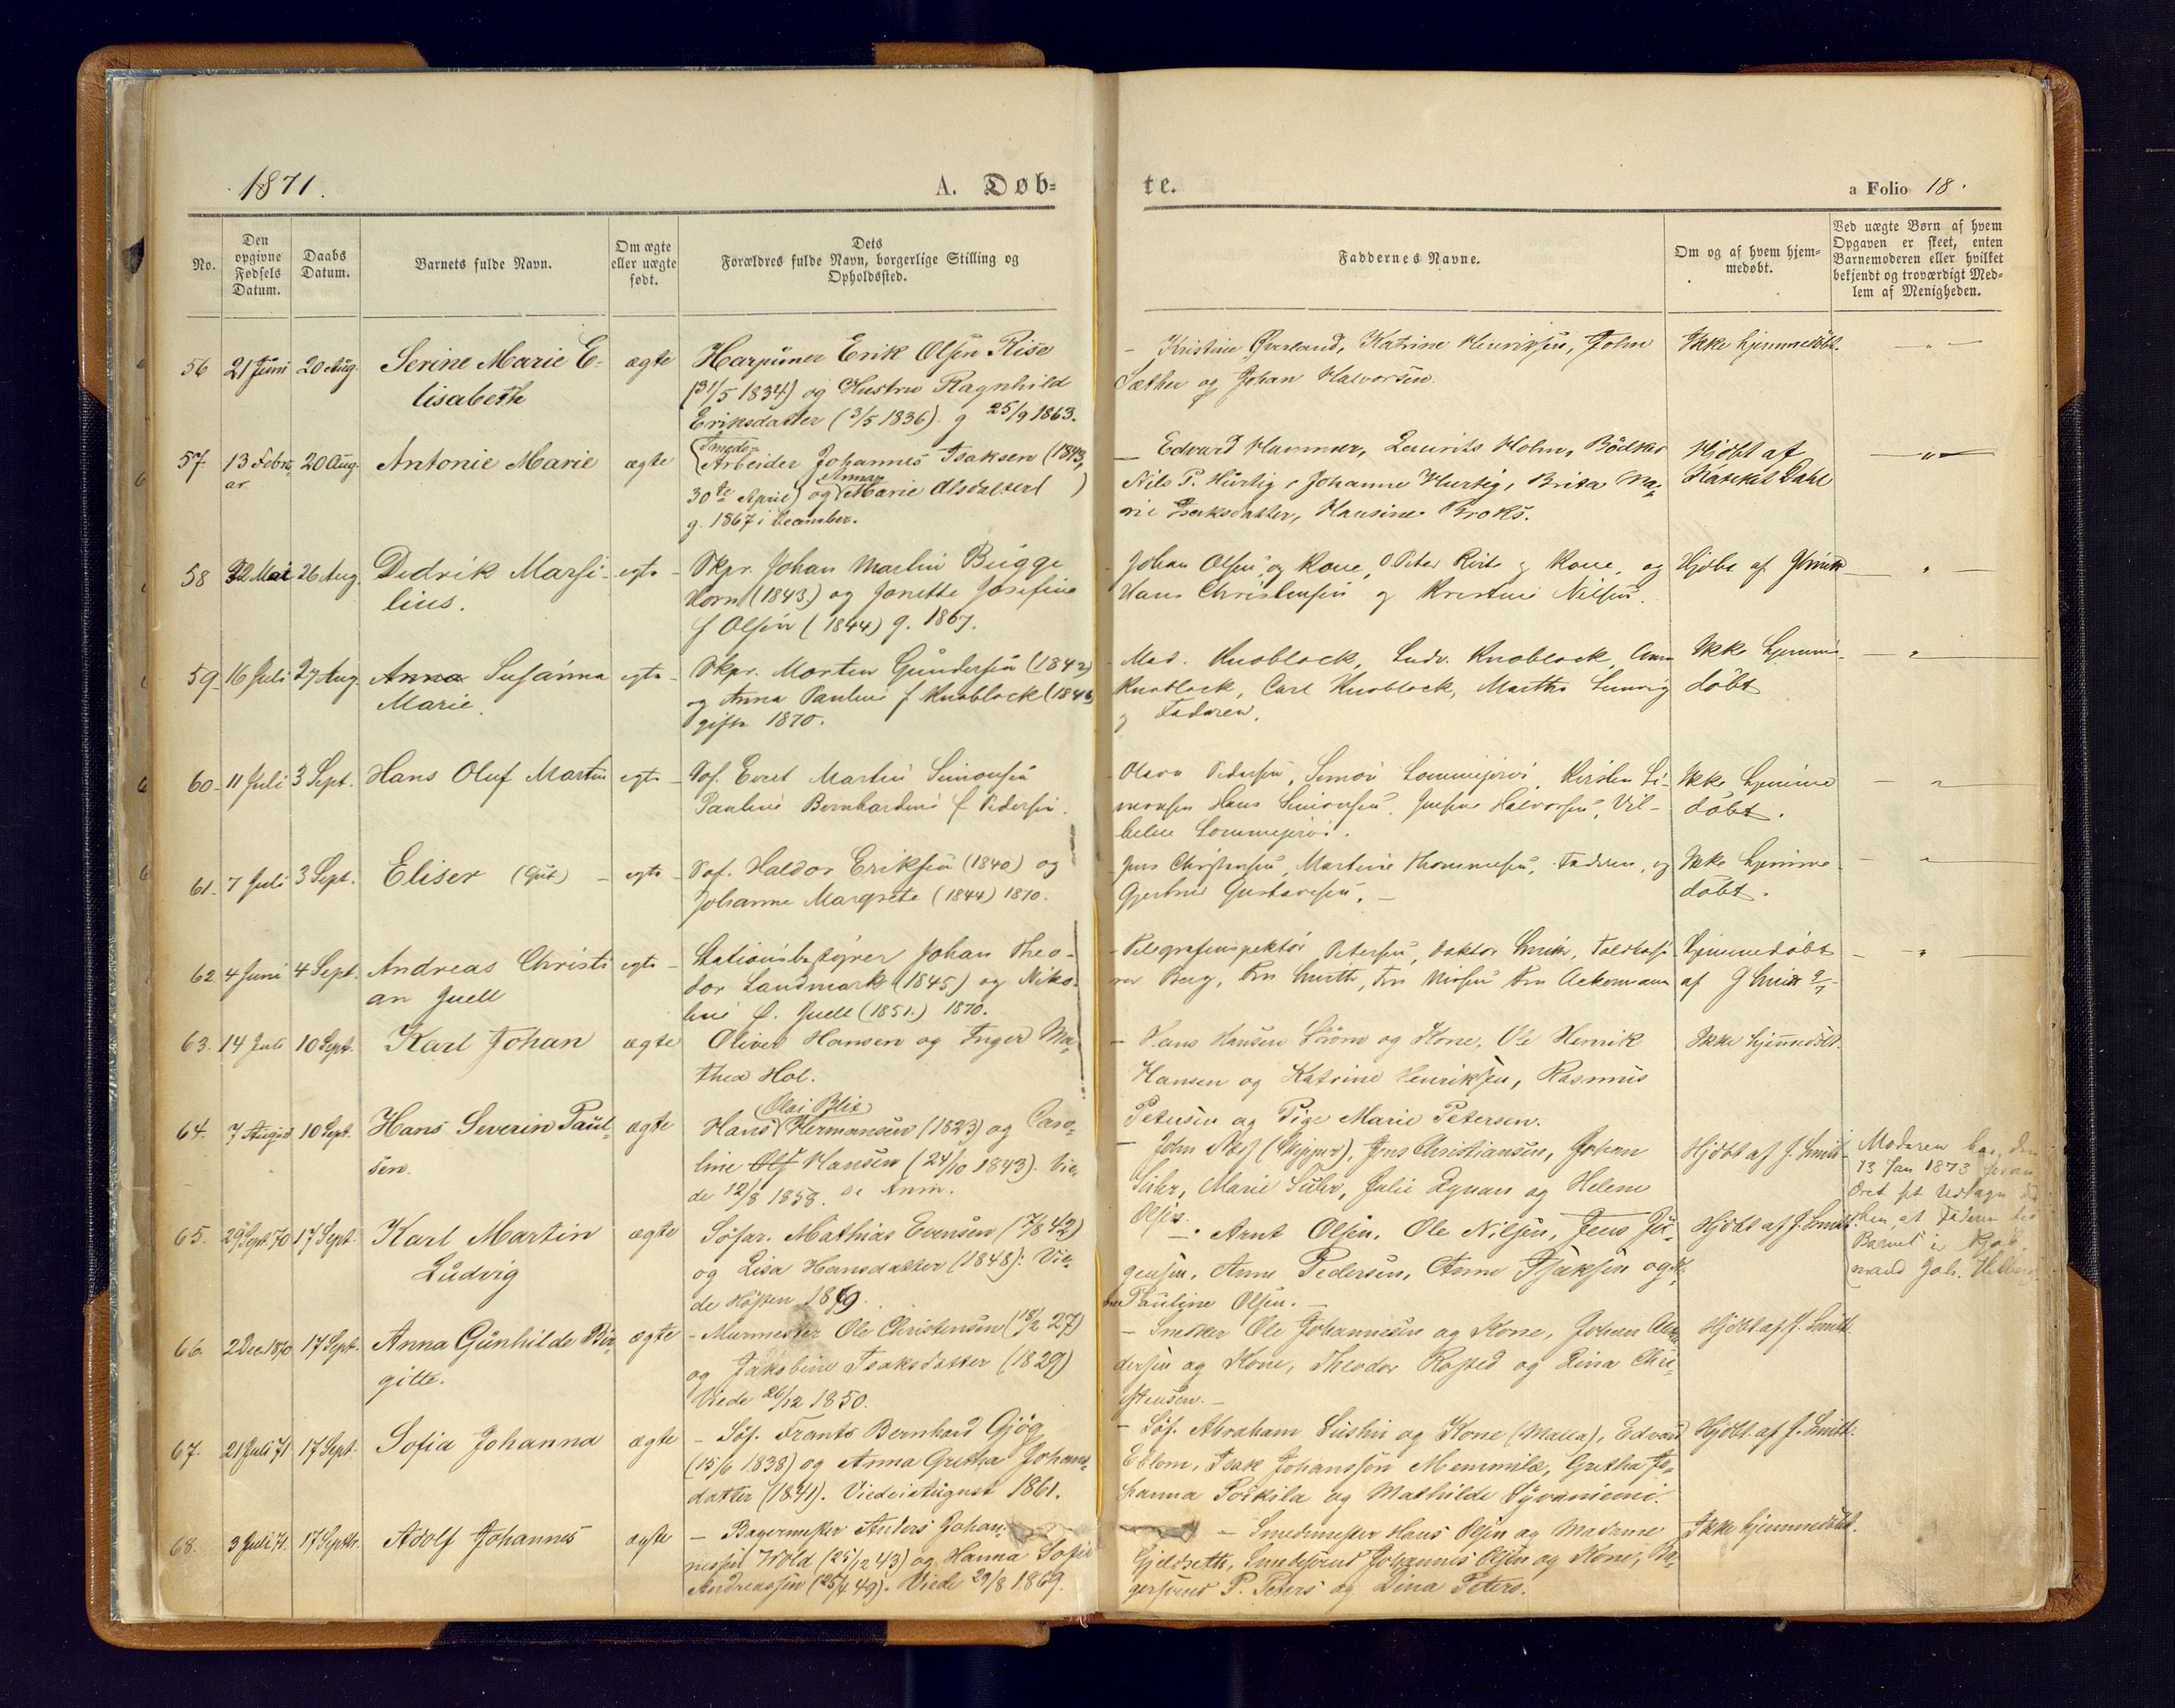 1871.
A. Døb=
te.
a Folio 18.
No.
Den opgivne Fødsels Datum.
Daabs Datum.
Barnets fulde Navn.
Om ægte eller uægte født.
Dets Forældres fulde Navn, borgerlige Stilling og Opholdssted.
Faddernes Navne.
Om og af hvem hjem= medøbt.
Ved uægte Børn af hvem Opgaven er skeet, enten Barnemoderen eller hvilket bekjendt og troværdigt Med= lem af Menigheden.
56 21 Juni 20 Aug. Serine Marie E- ægte Harpuner Erik Olsen Rise
lisabeth (31/5 1834) og Hustru Ragnhild
Eriksdatter (3/5 1836). g 25/9 1863.
– Kristine Øverland, Katrine Henriksen, John
Sæther og Johan Halvorsen.
Ikke hjemmedøbt.
57. 13 Febru- 20 Aug. Antonie Marie ægte Arbeider Johannes Isaksen (1843,
ar 30te April) og Anna Marie Olsdatter ( )
g. 1867 i December.
– Edvard Hammer, Laurits Holm, Bødker
Nils P. Hurtig, Johanne Hurtig, Brita Ma-
rie Isaksdatter, Hansine Broks.
Hjdøbt af
Kateket Dahl
58 Mai 26 Aug. Didrik Marsi- egte Skpr. Johan Martin Bugge
lius. Horn (1843.) og Janette Josefine
f Olsen (1844) g. 1867.
Johan Olsen og Kone, Peter og Kone og
Hans Christensen og Kristine Nilsen.
Hjdøbt af Smith
59. 16 Juli 27 Aug. Anna Susanna egte Skpr. Morten Gundersen (1842)
Marie. og Anna Pauline f Knoblock (1846)
gift 1870.
Mad. Knoblock, Ludv. Knoblock, Anna
Knoblock, Carl Knoblock, Martha
og Faderen.
Ikke hjemme-
døbt
60. 11 Juli 3 Sept. Hans Oluf Martin egte Søf. Evert Martin Simonsen
Pauline Bernhardine f. Pedersen.
Olava Pedersen, Simon Kirsten Si-
monsen Hans Simonsen, Halvorsen, Vil-
helm
Ikke hjemme
døbt.
61. 7 Juli 3 Sept. Eliser (Gut) egte Søf. Haldor Eriksen (1840) og
Johanne Margrete (1844) 1870.
Jens Christensen, Martine Thommesen, Faderen, og
Gustavsen.
Ikke hjemme-
døbt.
62 4 Juni 4 Sept. Andreas Christi egte Stationsbestyrer Johan Theo-
an Juell dor Landmark (1845) og Niko-
line f. Juell (1851.) 1870.
Telegrafinspektør Petersen, Doktor Smith,
Berg, Fru Smith, Fru Fru Ackermann
Hjemmedøbt
af J Smith
63. 14 Juli 10 Sept. Karl Johan ægte Oliver Hansen og Inger Ma-
thea Hol.
– Hans Hansen Strøm og Kone, Ole Henrik
Hansen og Katrine Henriksen, Rasmus
Petersen og Pige Marie Petersen.
Ikke hjemmedøbt.
64. 7 August 10 Sept. Hans Severin Paul- ægte Hans (Olai Blix) Hermansen (1823) og Caro-
sen. line Hansen (24/10 1843). Vie-
de 12/8 1858. se Anm.
– John Næs (Skipper), Jens Christiansen, Johan
Suhr, Marie Suhr, Julie og Helene
Olsen.
Hjdøbt af J. Smith
Moderen har den
13 Jan 1873
at Faderen til
Barnet er
mand Joh.
65. 29 Sept 70 17 Sept. Karl Martin ægte Søfar. Mathias Evensen (7/8 42)
Ludvig og Lisa Hansdatter (1848). Vie-
de Høsten 1869.
– Arnt Olsen, Ole Nilsen, Jens Jør-
gensen, Anne Pedersen, Anne Isaksen og
Pauline Olsen.
Hjdøbt af J. Smith.
66. 2 Dec. 1870 17 Sept. Anna Gunhilde Bir- ægte – Murmester Ole Christensen (18/2 27)
gitte. og Jakobine Isaksdatter (1829)
Viede 26/12 1850.
– Snedker Ole Johannesen og Kone, Johan
dersen og Kone, Theodor Rosted og Lina Chri-
stensen.
Hjdøbt af J. Smith.
67. 21 Juli 71 17 Sept. Sofia Johanna ægte – Søf. Frants Bernhard Gjøg
(15/6 1838) og Anna Gretha Johans-
datter (1841). Viede i August 1861.
– Søf. Abraham og Kone (Malla), Edvard
Isak Johansson Memmilæ, Gretha Jo-
hanna Porkila og Mathilde Syvaniemi.
Hjdøbt. af J. Smith.
68. 3 Juli 71. 17 Septbr. Adolf Johannes ægte – Bagermester Anders Johan-
nessen Wold (25/12 43) og Hanna Sofie
Andreassen (25/4 49). Viede 29/8 1869.
– Smedemester Hans Olsen og Madame
Gjeldseth, Smedsvend Johannes Olsen og Kone, Ba-
gersvend P. Peters og Lina Peters.
Ikke hjemmedøbt.